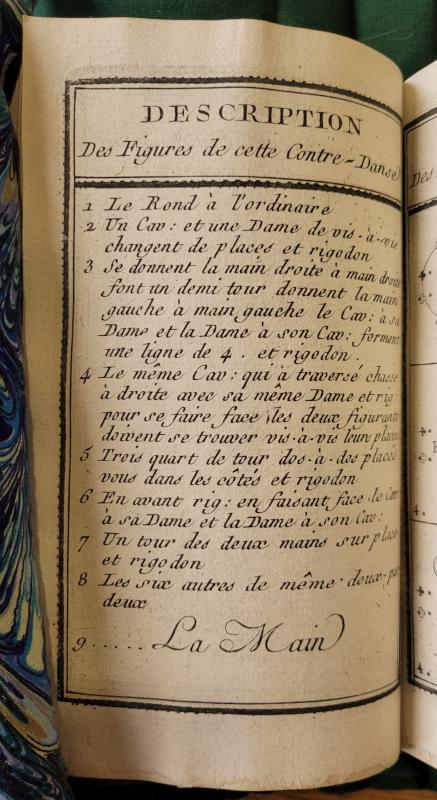 DESCRIPTION
Des Figures de cette Contre-Danse
1 Le Rond à l'ordinaire
2 Un Cav: et une Dame de vis-à-vis
changent de places et rigodon
3 Se donnent la main droite à main droite
font un demi tour donnent la main
gauche à main gauche le Cav: à sa
Dame et la Dame à son Cav: forment
une ligne de 4. et rigodon.
4 Le même Cav: qui à traversé chasse
à droite avec sa même Dame et rig:
pour se faire face, les deux figurants
doivent se trouver vis-à-vis leurs places
5 Trois quart de tour dos-à-dos placés
vous dans les côtés et rigodon
6 En avant rig: en faisant face le Cav:
à sa Dame et la Dame à son Cav:
7 Un tour des deux mains sur place
et rigodon
8 Les six autres de même deux-par
deux
9..... La Main